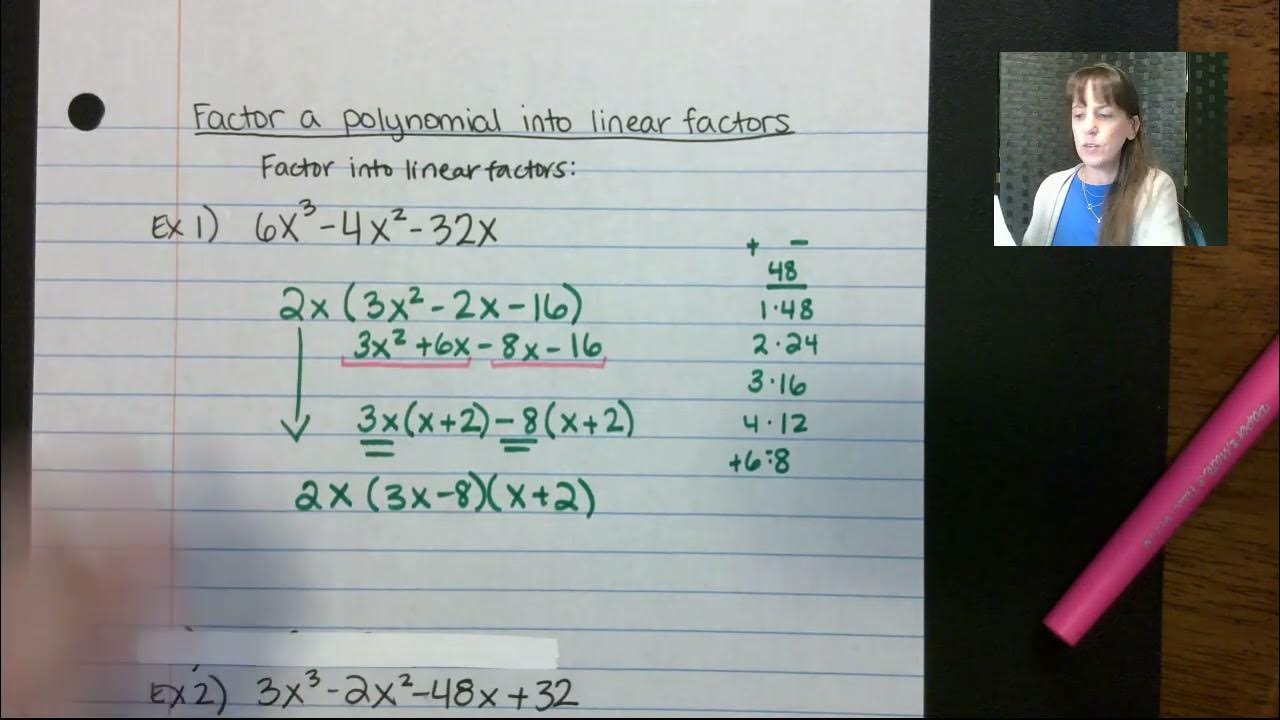 Factor a polynomial into linear factors
Factor into linear factors:
Ex 1) 6x³ - 4x² - 32x
2x (3x² - 2x - 16)
3x² + 6x - 8x - 16
3x(x+2) - 8(x+2)
2x (3x-8)(x+2)
+ -
48
1·48
2·24
3·16
4·12
+6·-8
Ex 2) 3x³ - 2x² - 48x + 32